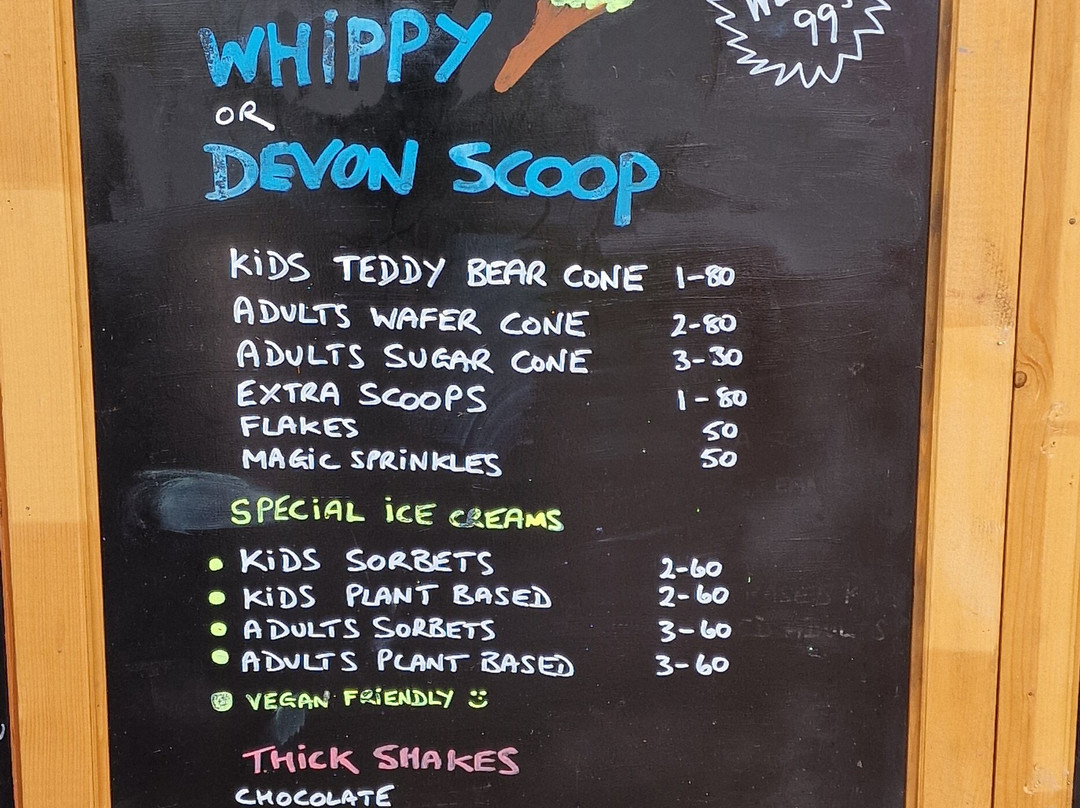 WHiPPY
99
OR
DEVON SCOOP
KiDS TEDDY BEAR CONE 1-80
ADULTS WAFER CONE 2-80
ADULTS SUGAR CONE 3-30
EXTRA SCOOPS 1-80
FLAKES 50
MAGiC SPRiNKLES 50
SPECiAL iCE CREAMS
KiDS SORBETS 2-60
KiDS PLANT BASED 2-60
ADULTS SORBETS 3-60
ADULTS PLANT BASED 3-60
VEGAN FRiENDLY
THiCK SHAKES
CHOCOLATE